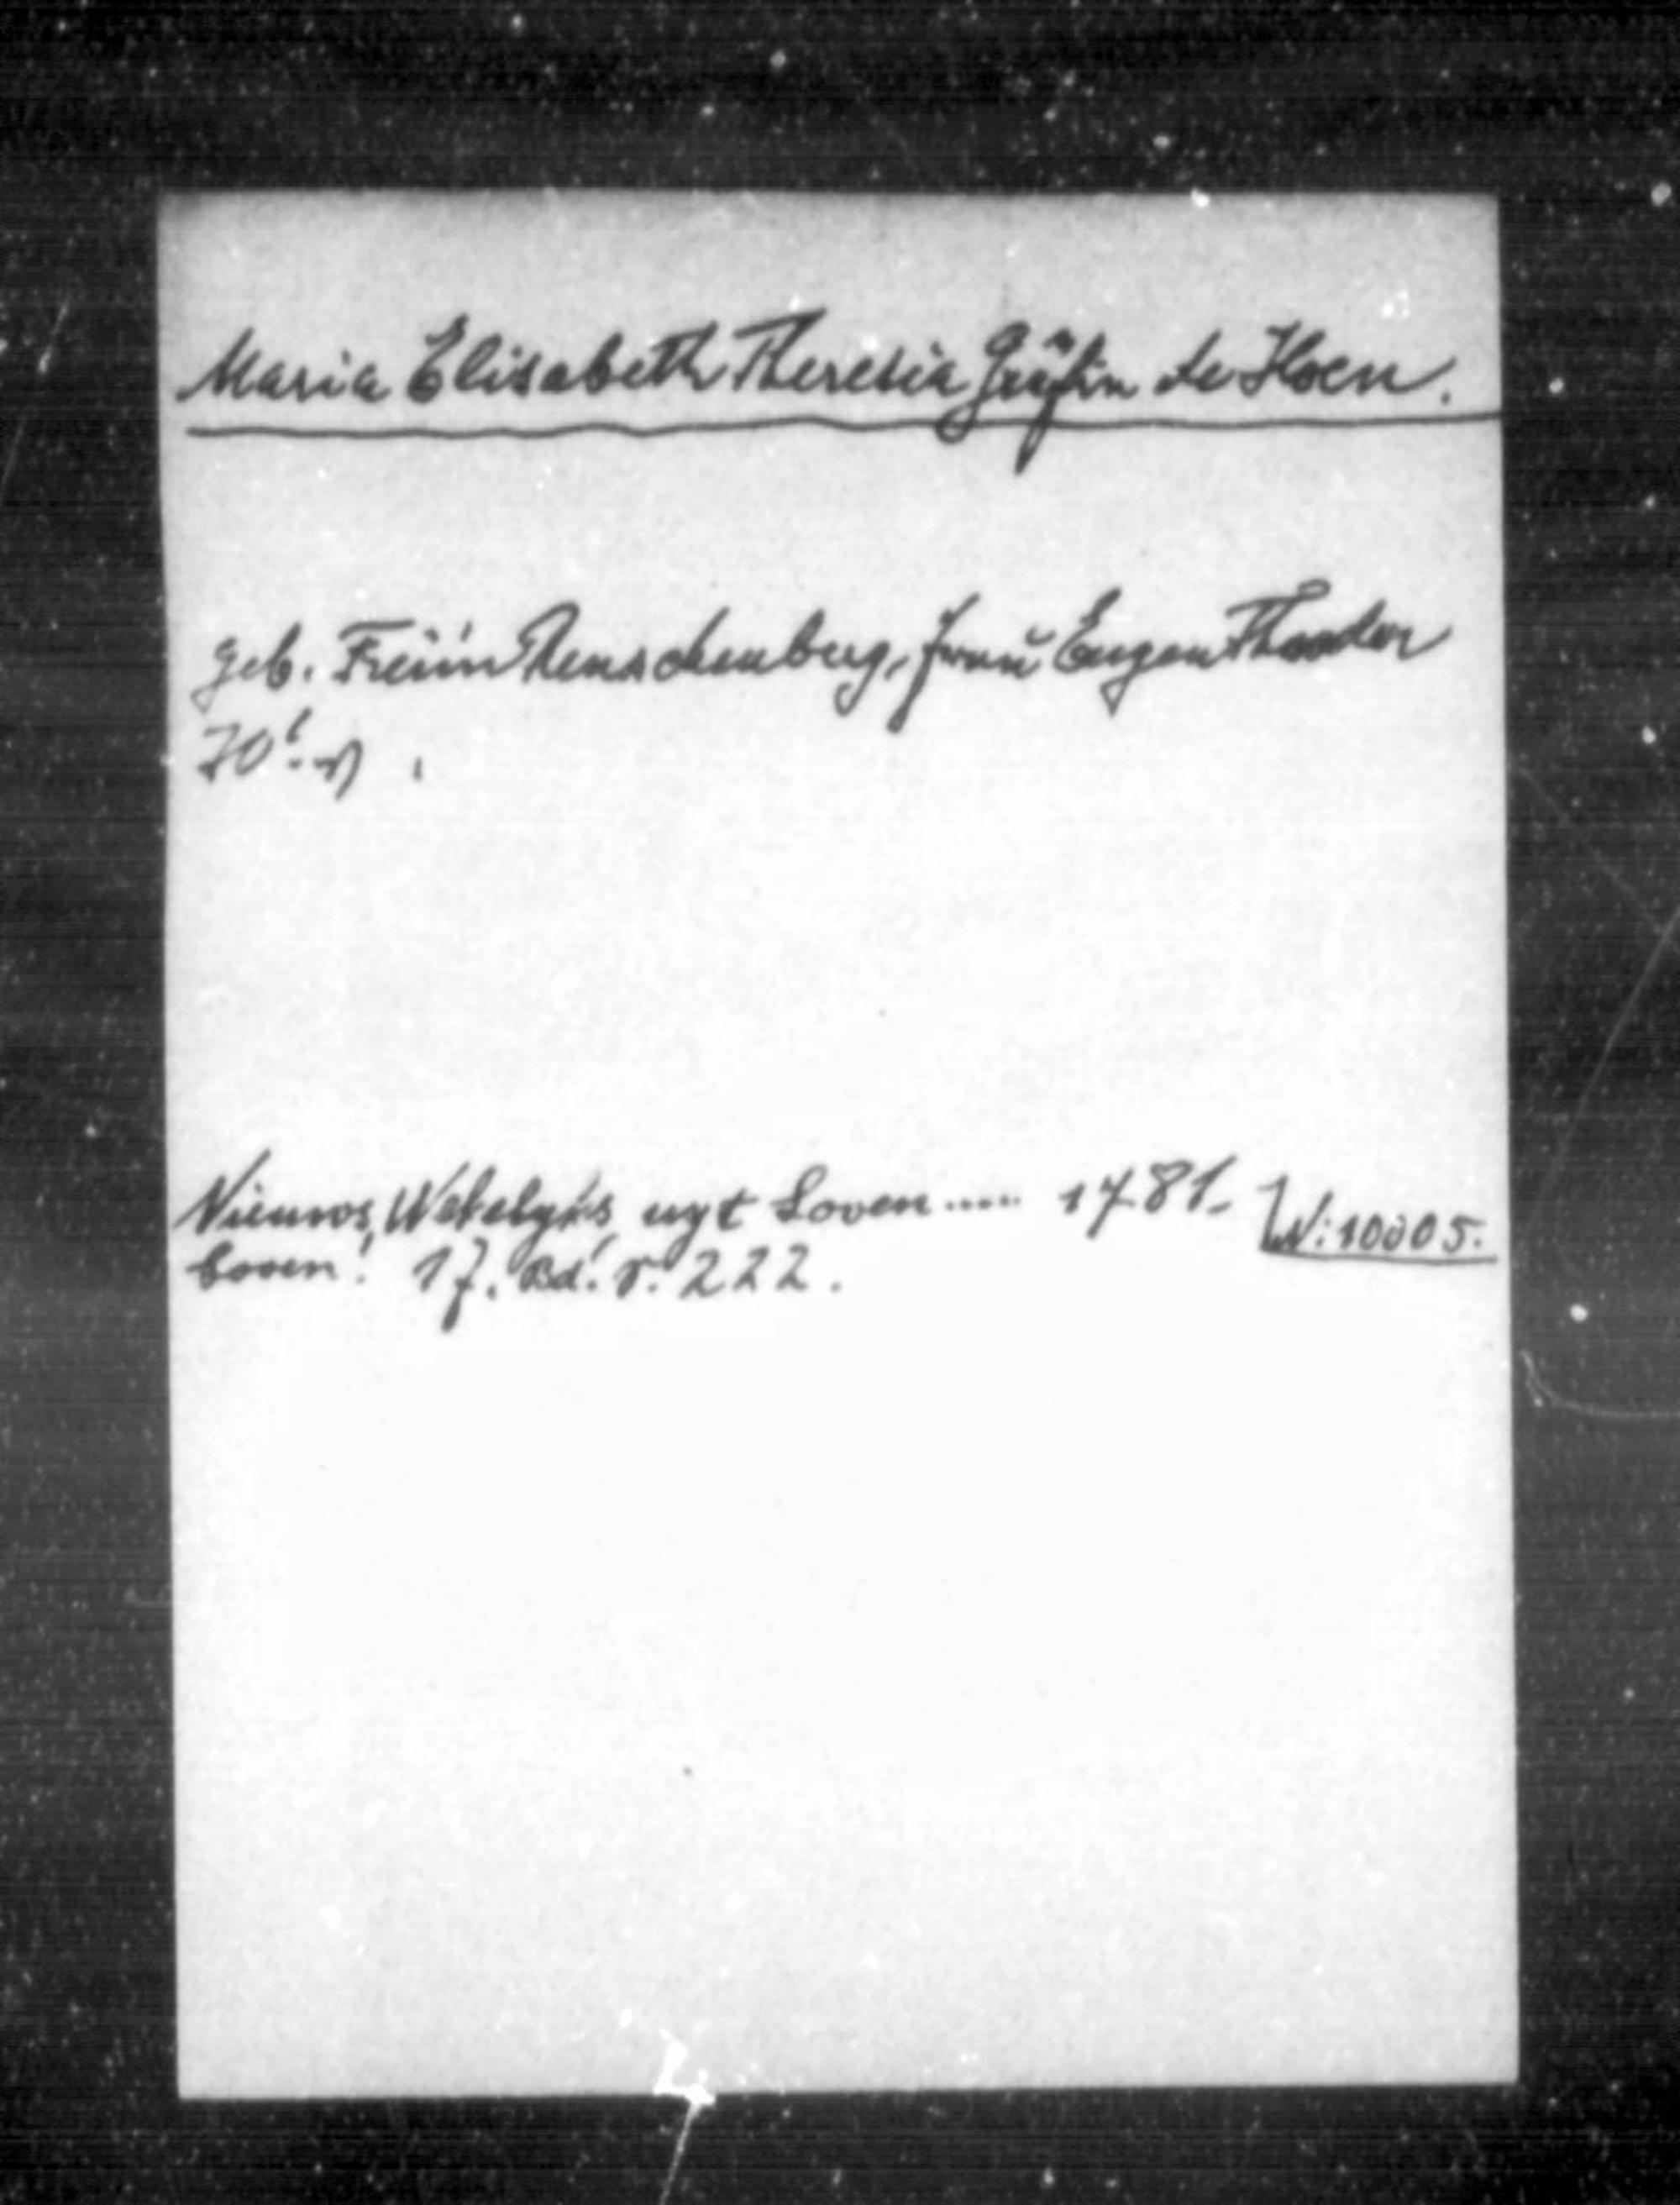 Maria Elisabeth Theresia Gräfin de Hoen.
geb. Freiin Renschenberg, Frau Eugen Theodor
Nieuws, Wekelyks, uyt Loven ..... 1781.
W: 10005.
Loven! 17. Bd. S. 222.